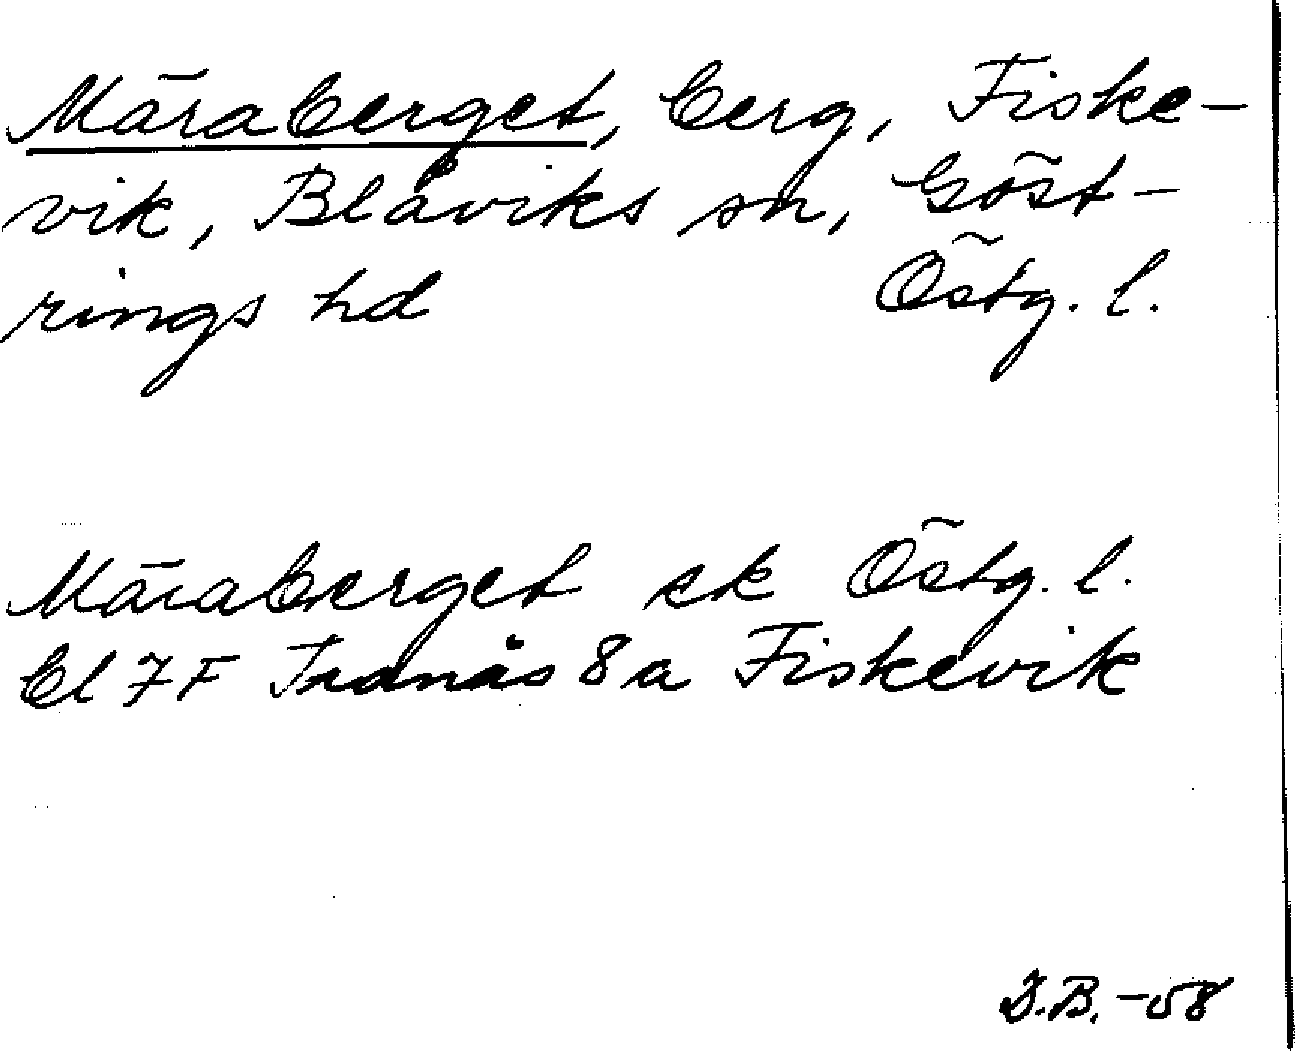 Märaberget, berg, Fiske-
vik, Blåviks sn, Göst-
rings hd Östg. l.
Märaberget ek Östg. l.
bl 7F Tranås 8a Fiskevik
B. -58